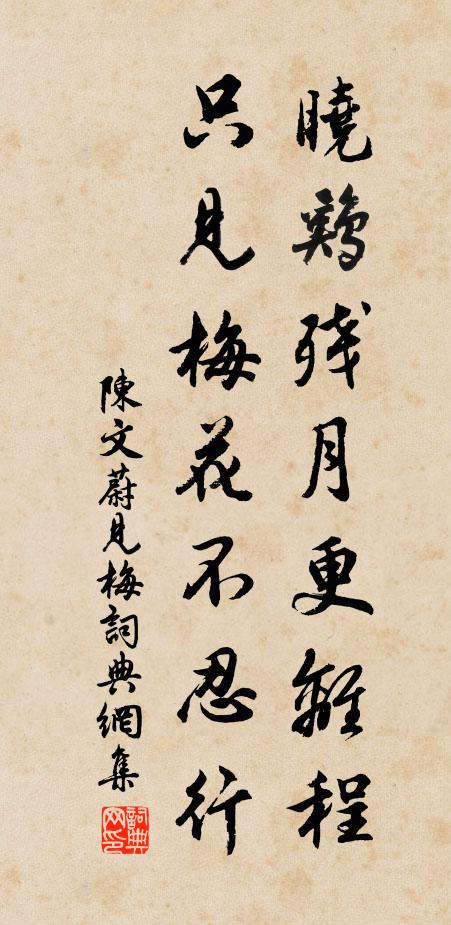 曉鷄残月更離程
只見梅花不忍行
陳文蔚見梅詞典網集
詞典网印